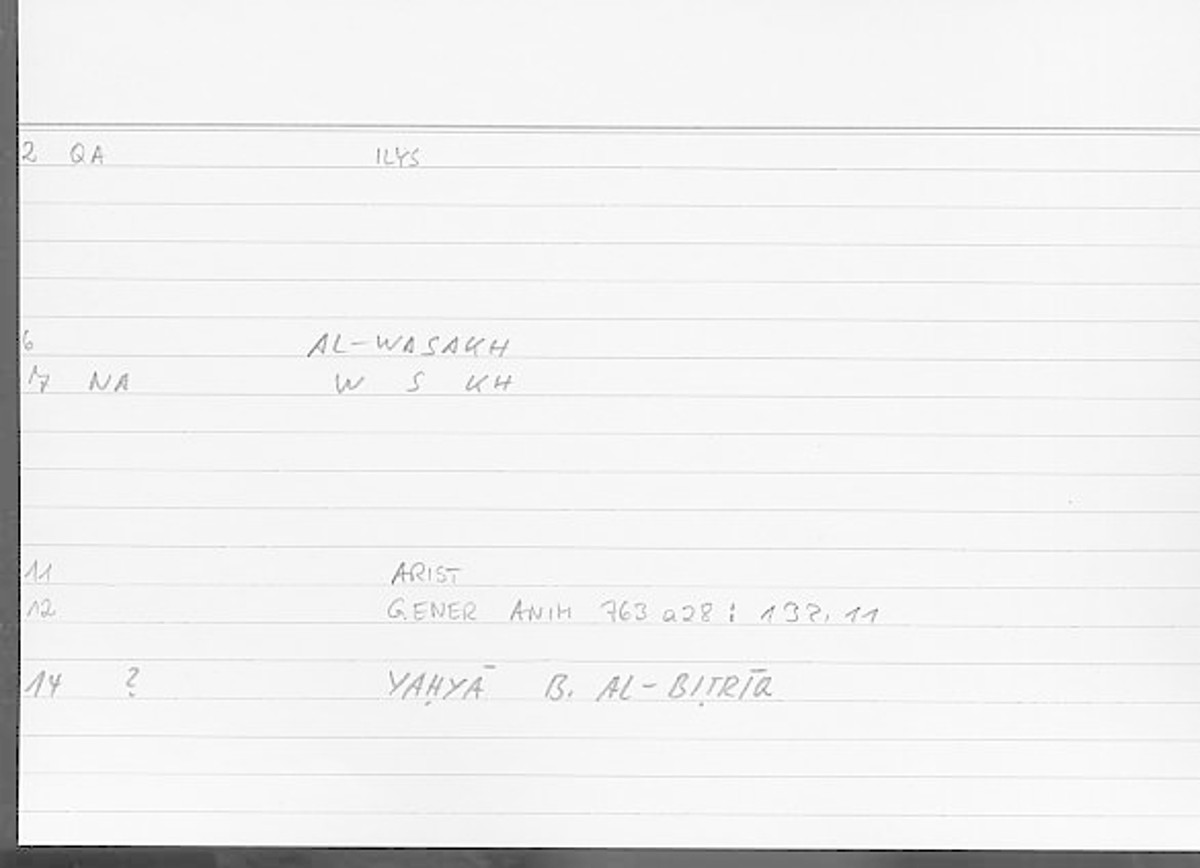 2 QA ILYS
6 AL-WASAKH
7 NA W S KH
11 ARIST
12 GENER ANIM 763 a28 : 132, 11
14 ? YAḤYĀ B. AL-BIṬRĪQ